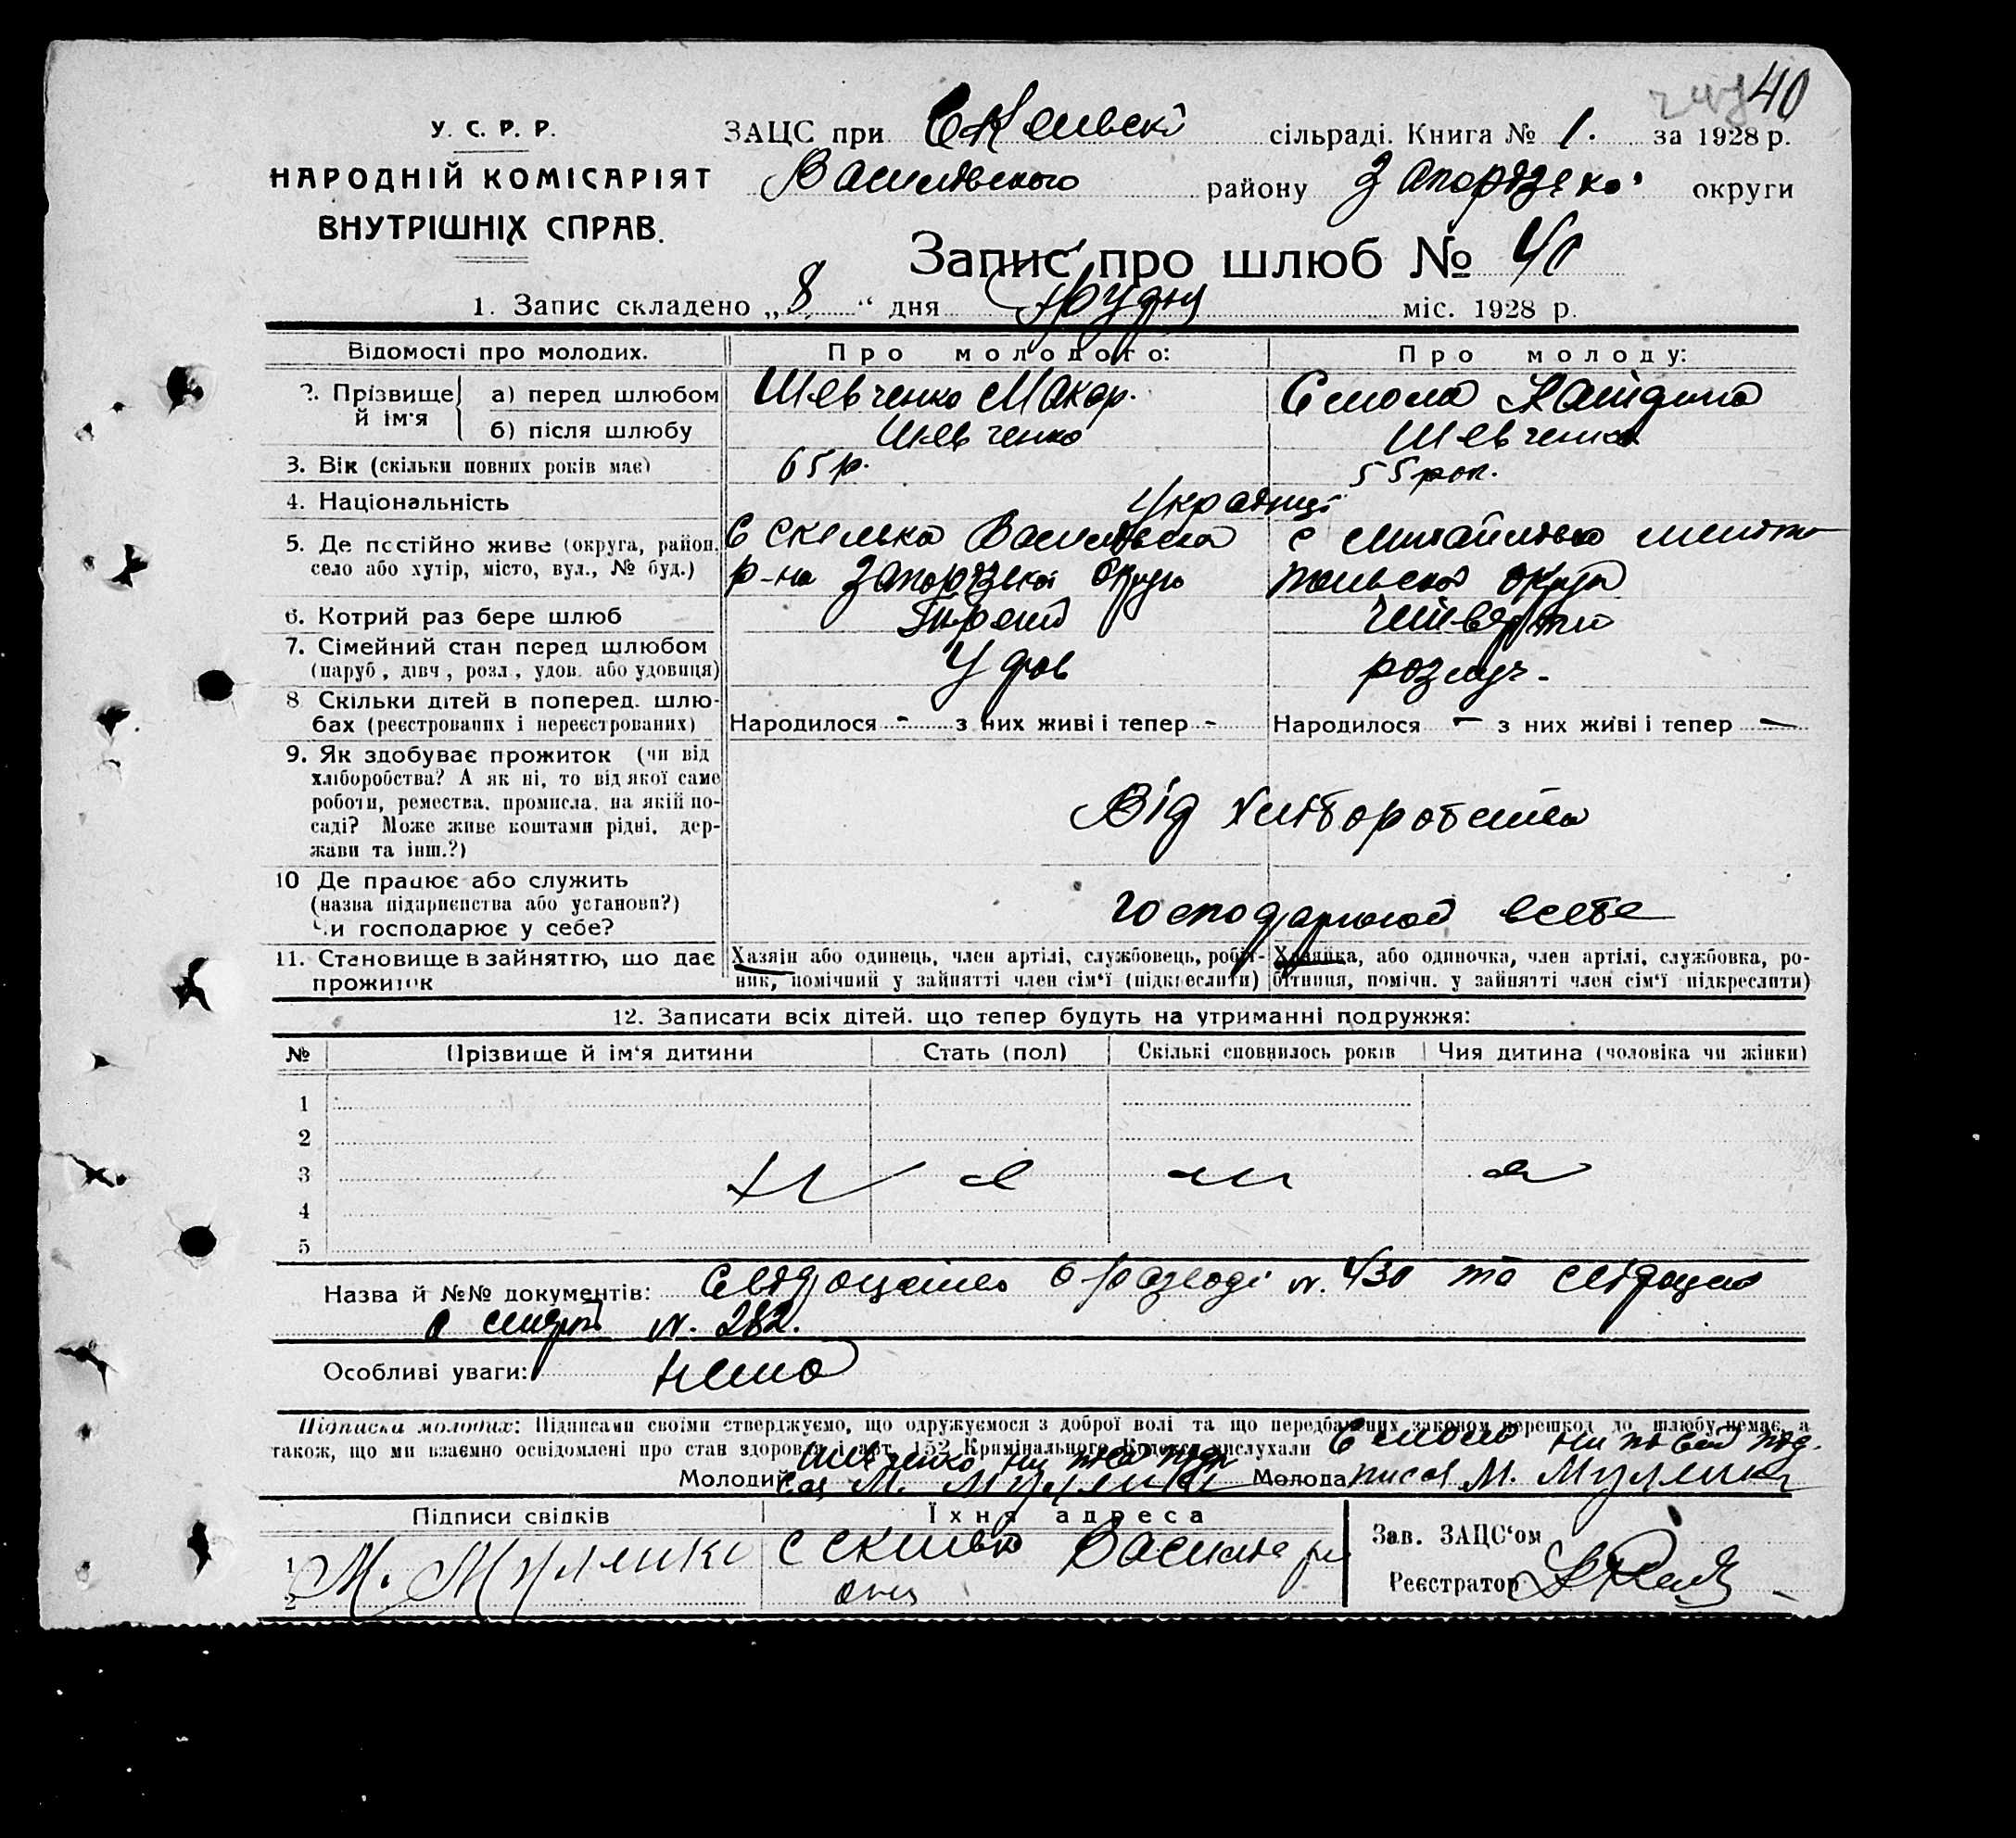 40
У. С. Р. Р.
НАРОДНІЙ КОМІСАРІЯТ
ВНУТРІШНІХ СПРАВ.
ЗАЦС при сільраді. Книга № 1. за 1928 р.
Василівського району округи
Запис про шлюб № 40
1. Запис складено „8“ дня Грудня міс. 1928 р.
Відомості про молодих. Про молодого: Про молоду:
2. Прізвище й ім'я а) перед шлюбом Шевченко Макар. Смола
б) після шлюбу Шевченко Шевченко
3. Вік (скільки повних років має) 65 р. 55 рок.
4. Національність Українці
5. Де постійно живе (округа, район, с Скелька с
село або хутір, місто, вул., № буд.) р-на округи
6. Котрий раз бере шлюб
7. Сімейний стан перед шлюбом
(паруб, дівч, розл, удов. або удовиця) Удов розлуч.
8 Скільки дітей в поперед. шлю-
бах (реєстрованих і нереєстрованих) Народилося - з них живі і тепер - Народилося - з них живі і тепер -
9. Як здобуває прожиток (чи від
хліборобства? А як ні, то від якої саме
роботи, ремества, промисла, на якій по-
саді? Може живе коштами рідні, дер-
жави та інш.?) Від хліборобства
10 Де працює або служить
(назва підприємства або установи?)
Чи господарює у себе? всебе
11. Становище в зайняттю, що дає Хазяін або одинець, член артілі, службовець, робіт- Хазяйка, або одиночка, член артілі, службовка, ро-
прожиток ник, помічний у зайнятті член сім'ї (підкреслити) бітниця, помічн. у зайнятті член сім'ї підкреслити)
12. Записати всіх дітей. що тепер будуть на утриманні подружжя:
№ Прізвище й ім'я дитини Стать (пол) Скількі сповнилось років Чия дитина (чоловіка чи жінки)
1
2
3
4
5
Назва й №№ документів: о разводі №. 430 та
о смерті №. 282.
Особливі уваги: Нема
Підписка молодих: Підписами своїми стверджуємо, що одружуємося з доброї волі та що передбачених законом перешкод до шлюбу немає, а
також, що ми взаємно освідомлені про стан здоровья і арт. 152 Кримінального Кодекса вислухали
Молодий Шевченко М. Молода М.
Підписи свідків Їхня адреса
1 М. с Скелька
2
Зав. ЗАЦС'ом
Реєстратор